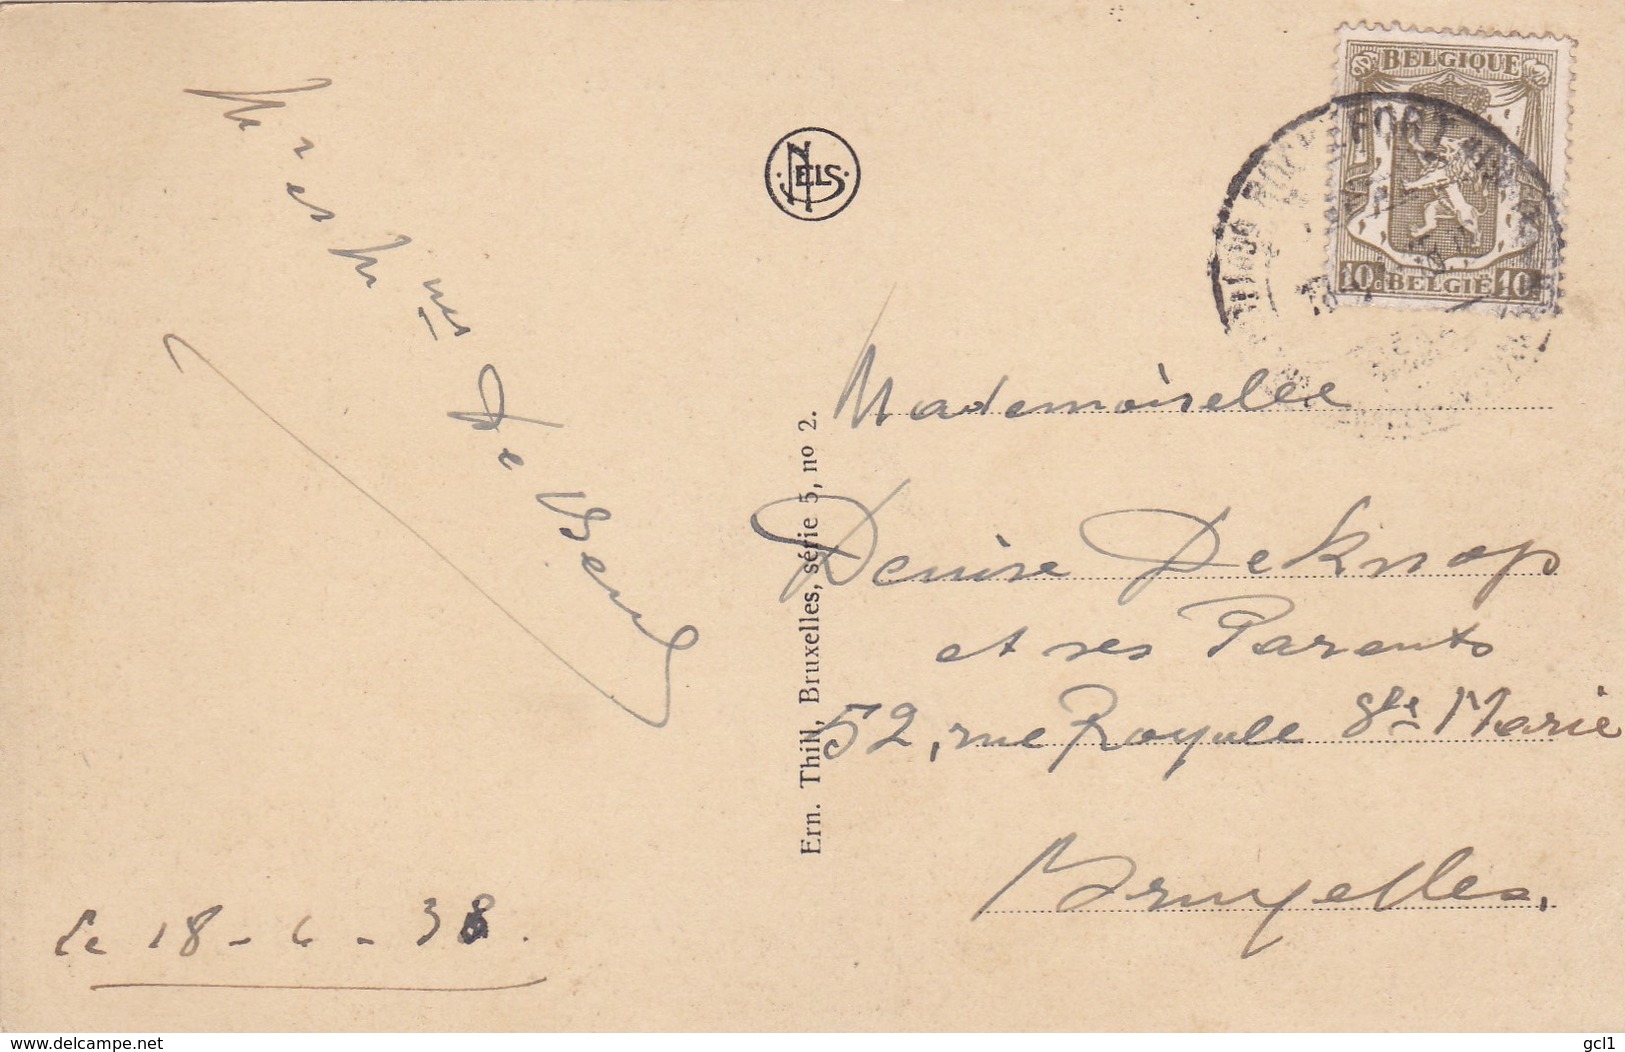 Mr et Mmes De Beul
le 18 - 6 - 38.
NELS
Ern. Thill, Bruxelles, série 5, no 2.
BELGIQUE
10c BELGIË 10c
Mademoiselle
Denise DeKnop
et ses Parents
52, rue Royale Ste Marie
Bruxelles.
www.delcampe.net
gcl1